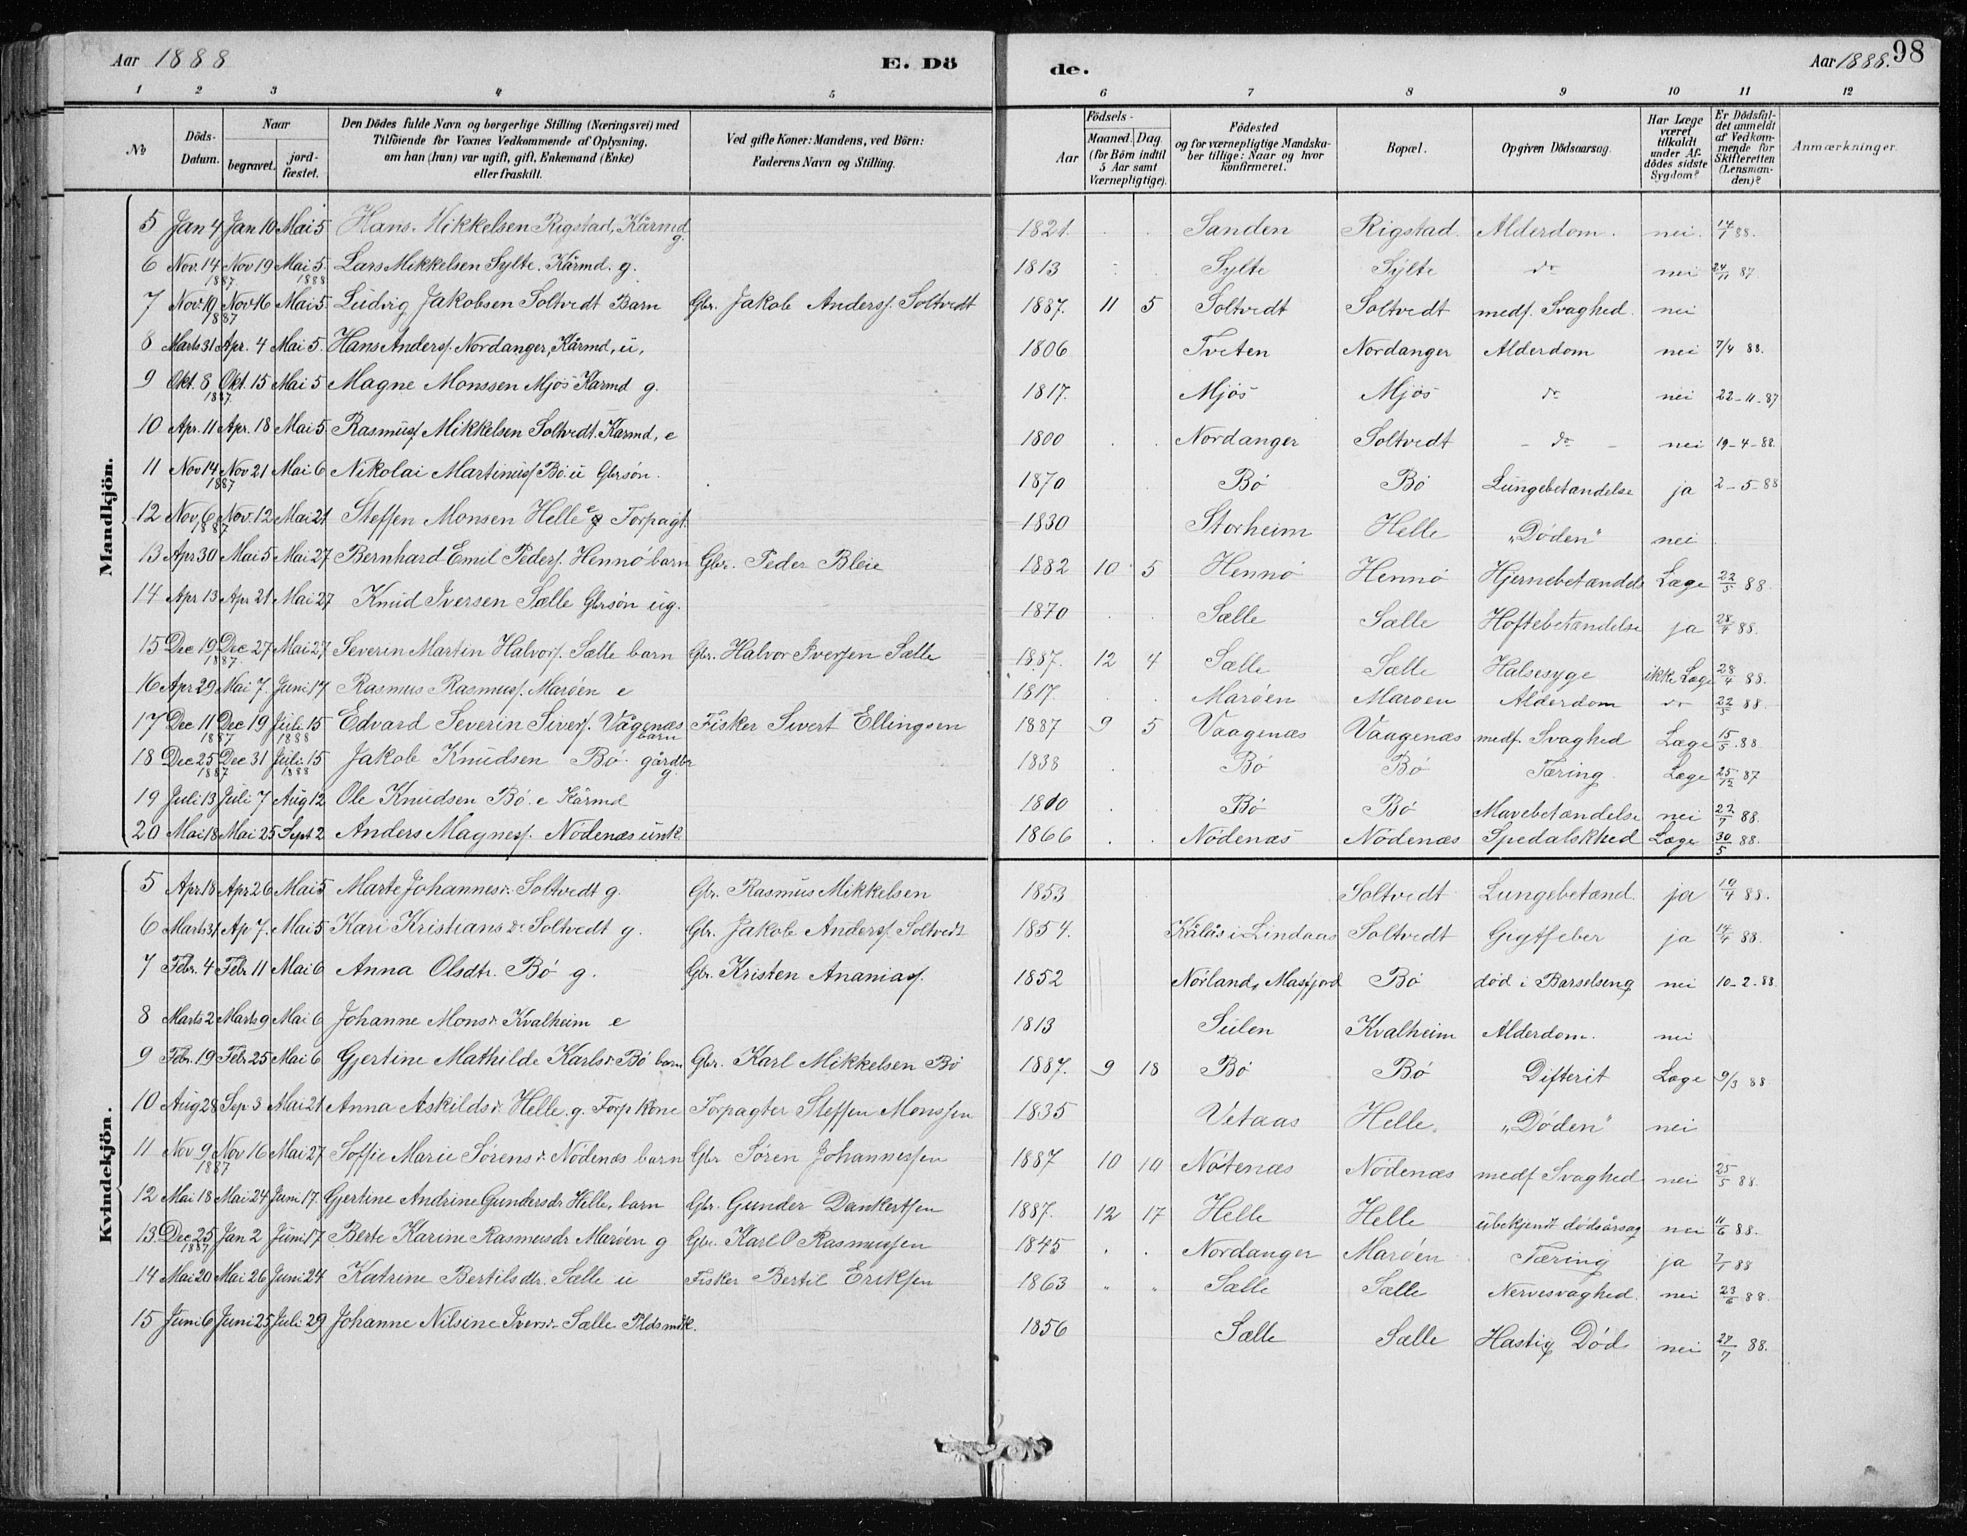 Aar 1888 E. Dö de. Aar 1888. 98
1 2 3 4 5 6 7 8 9 10 11 12
№ Döds-Datum. Naar begravet. jord-fæstet. Den Dödes fulde Navn og borgerlige Stilling (Næringsvei) med Tilföiende for Voxnes Vedkommende af Oplysning, om han (hun) var ugift, gift, Enkemand (Enke) eller fraskilt. Ved gifte Koner: Mandens, ved Börn: Faderens Navn og Stilling. Aar Födsels- Maaned. Dag (for Börn indtil 5 Aar samt Værnepligtige). Födested og for værnepligtige Mandskaber tillige: Naar og hvor konfirmeret. Bopæl. Opgiven Dödsaarsag. Har Læge været tilkaldt under Afdödes sidste Sygdom? Er Dödsfaldet anmeldt af Vedkommende for Skifteretten (Lensmanden)? Anmærkninger.
Mandkjön.
5 Jan 4 Jan 10 Mai 5 Hans Mikkelsen Rigstad, Kårmd g. 1821. Sanden Rigstad Alderdom. nei. 14/1 88.
6 Nov. 14 1887 Nov 19 Mai 5. 1888 Lars Mikkelsen Sylte. Kårmd. g. 1813 Sylte Sylte do nei 24/11 87.
7 Nov. 10 1887 Nov 16 Mai 5. Ludvig Jakobsen Soltvedt Barn Gbr. Jakob Anders. Soltvedt 1887. 11 5 Soltvedt Soltvedt medf. Svaghed. nei
8 Marts 31 Apr. 4 Mai 5. Hans Anders. Nordanger, Kårmd, u. 1806 Tveten Nordanger Alderdom nei 7/4 88.
9 Okt. 8 1887 Okt. 15 Mai 5 Magne Monssen Mjös Karmd g. 1817. Mjös Mjös do nei 22-11-87
10 Apr. 11 Apr. 18 Mai 5. Rasmus Mikkelsen Soltvedt. Karmd, e 1800 Nordanger Soltvedt - do - nei 19-4-88.
11 Nov 14 1887 Nov 21 Mai 6 Nikolai Martinus. Bö. u Gbrsøn. 1870 Bö Bö Lungebetændelse ja 2-5-88
12 Nov. 6 1887 Nov. 12 Mai 21 Steffen Monsen Helle e Forpagt. 1830 Storheim Helle "Døden" nei
13 Apr 30 Mai 5 Mai 27 Bernhard Emil Peders. Hennö barn Gbr. Peder Bleie 1882 10 5 Hennö Hennö Hjernebetændels Læge 22/5 88.
14 Apr 13 Apr 21 Mai 27 Knud Iversen Sælle Gbrsøn ug. 1870 Sælle Sælle Hoftebetændelse ja 28/4 88.
15 Dec 19 1887. Dec. 27 Mai 27 Severin Martin Halvors. Sælle barn Gbr. Halvor Iversen Sælle 1887. 12 4 Sælle Sælle Halsesyge ikke Læge 28/4 88.
16 Apr 29 Mai 7. Juni 17 Rasmus Rasmus. Maröen e 1817 Maröen Maroen Alderdom do 22/5 88.
17 Dec 11 1887 Dec 19 Juli 15 1888 Edvard Severin Sivers. Vågenæs barn Fisker Sivert Ellingsen 1887 9 5 Vaagenæs Vaagenæs medf. Svaghed Læge 15/5 88
18 Dec 25 1887 Dec 31 Juli 15 1888 Jakob Knudsen Bö. gårdbr g. 1838 Bö Bö Tæring. Læge 25/12 87
19 Juli 13 Juli 7 Aug 12 Ole Knudsen Bö. e Kårmd 1810 Bö Bö Mavebetændelse nei 27/7 88.
20 Mai 18 Mai 25 Sept 2 Anders Magnes. Nödenæs unk. 1866 Nödenæs Nödenæs Spedalskhed Læge 30/5 88.
Kvindekjön.
5 Apr 18 Apr 26 Mai 5 Marte Johannesd. Soltvedt g. Gbr. Rasmus Mikkelsen 1853 Soltvedt Lungebetænd. ja 19/4 88.
6 Marts 31 Ap 7. Mai 5 Kari Kristiansd. Soltvedt g. Gbr. Jakob Anders. Soltvedt 1854. Kålås i Lindaas Soltvedt Gigtfeber ja 14/4 88.
7 Febr. 4 Febr 11 Mai 6 Anna Olsdtr. Bö g. Gbr. Kristen Ananias. 1852 Nörland, Masfjord Bö död i Barselseng nei 10-2-88.
8 Marts 2 Marts 9 Mai 6 Johanne Monsd. Kvalheim e 1813 Sulen Kvalheim Alderdom. nei
9 Febr. 19 Febr 25 Mai 6 Gjertine Mathilde Karlsd. Bö barn Gbr. Karl Mikkelsen Bö 1887. 9 18 Bö Bö Difterit Læge 9/3 88
10 Aug 28 Sep 3 Mai 21 Anna Askildsd. Helle. g. Forp kone Forpagter Steffen Monssen 1835 Vetaas Helle. "Døden" nei
11 Nov 9 1887 Nov 16 Mai 27 Soffie Marie Sørensd. Nödenæs barn Gbr Søren Johannessen 1887 10 10 Nötenæs Nödenæs medf Svaghed nei 25/5 88.
12 Mai 18 Mai 24 Juni 17. Gjertine Andrine Gundersdr. Helle, barn Gbr. Gunder Dankertsen 1887. 12 17 Helle Helle ubekjendt dødsårsag nei 11/6 88.
13. Dec 25 1887 Jan 2 Juni 17 Berte Karine Rasmusdr Maröen g Gbr. Karl O Rasmussen 1845 Nordanger Maröen Tæring ja 7/1 88
14 Mai 20 Mai 26 Juni 24 Katrine Bertilsdtr. Sælle u Fisker Bertil Eriksen 1863 " " Sælle Sælle Nervesvaghed. nei 23/6 88.
15 Juni 6 Juni 25 Juli 29 Johanne Nilsine Iversd. Sælle 1856 Sælle Sælle Hastig Död nei 27/7 88.